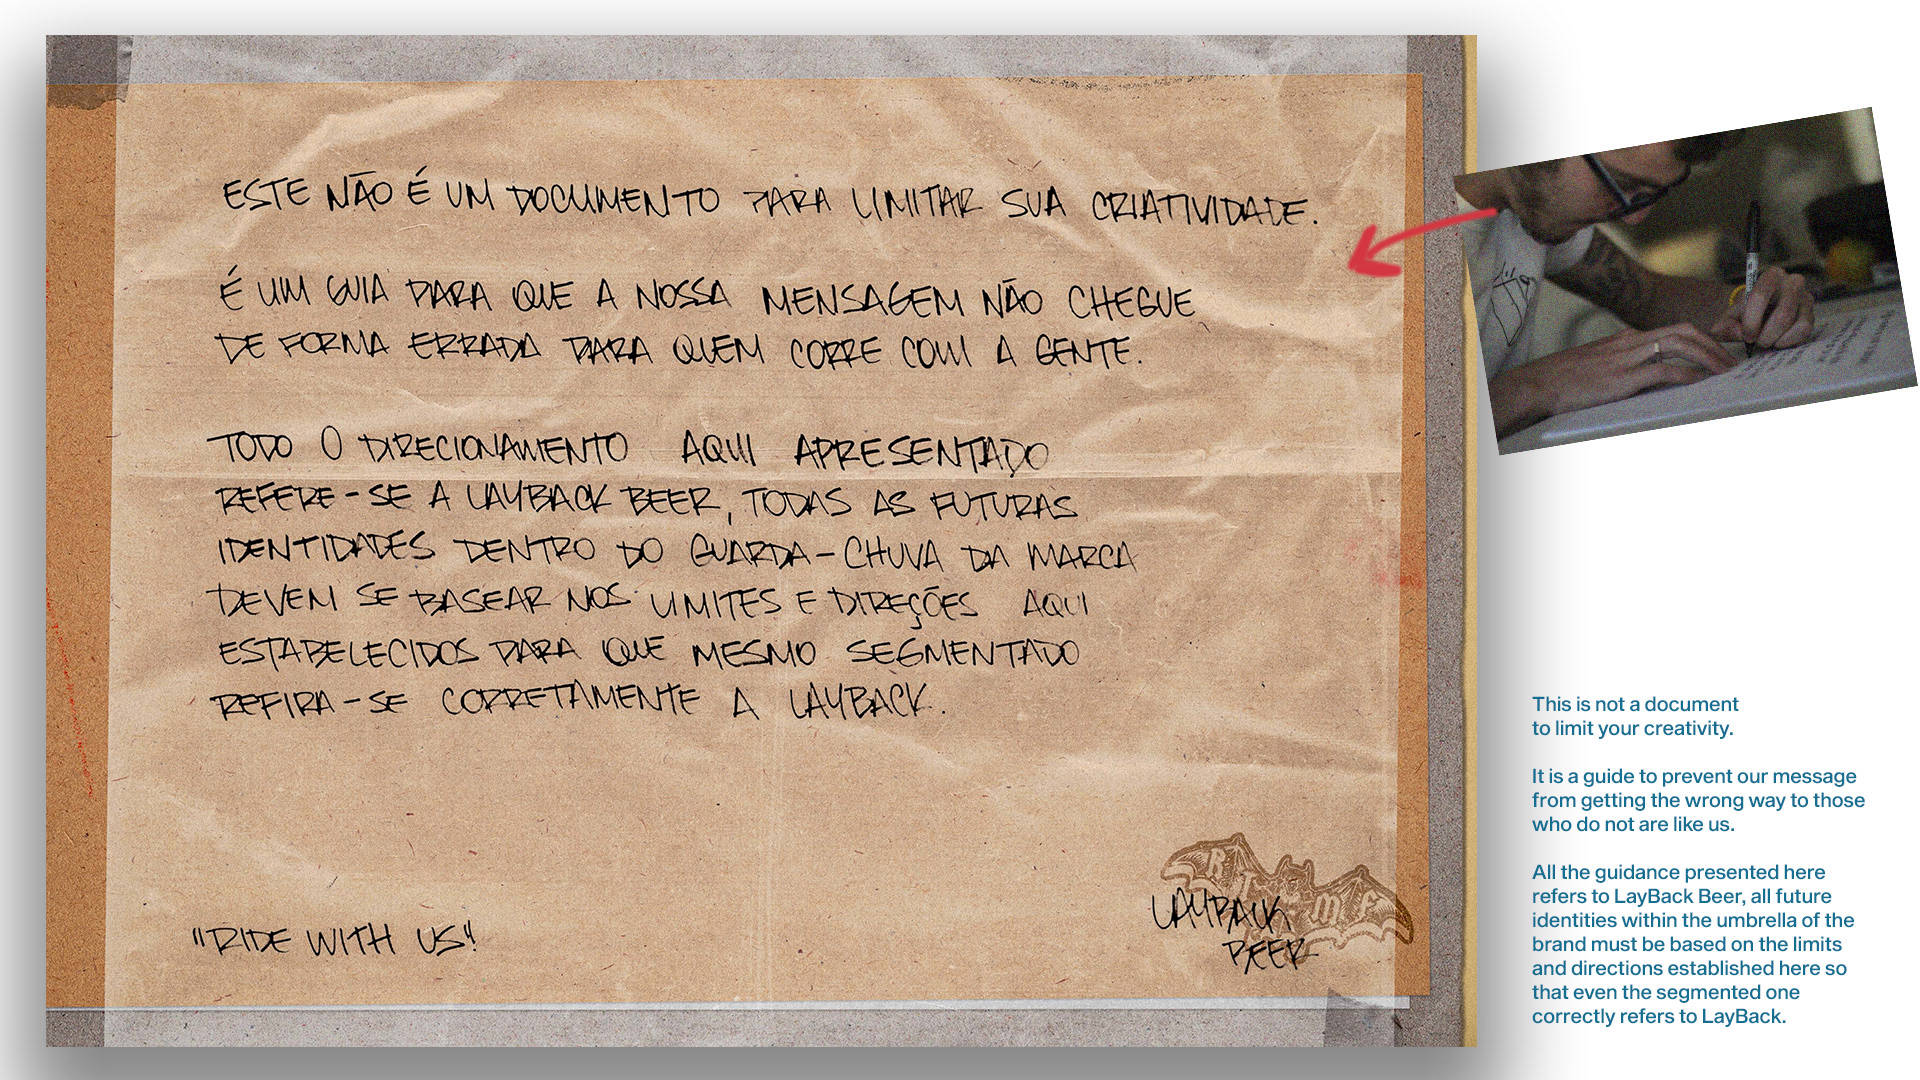 ESTE NÃO É UM DOCUMENTO PARA LIMITAR SUA CRIATIVIDADE.
É UM GUIA PARA QUE A NOSSA MENSAGEM NÃO CHEGUE
DE FORMA ERRADA PARA QUEM CORRE COM A GENTE.
TODO O DIRECIONAMENTO AQUI APRESENTADO
REFERE-SE A LAYBACK BEER, TODAS AS FUTURAS
IDENTIDADES DENTRO DO GUARDA-CHUVA DA MARCA
DEVEM SE BASEAR NOS LIMITES E DIREÇÕES AQUI
ESTABELECIDOS PARA QUE MESMO SEGMENTADO
REFIRA-SE CORRETAMENTE A LAYBACK.
"RIDE WITH US"
LAYBACK
BEER
This is not a document
to limit your creativity.
It is a guide to prevent our message
from getting the wrong way to those
who do not are like us.
All the guidance presented here
refers to LayBack Beer, all future
identities within the umbrella of the
brand must be based on the limits
and directions established here so
that even the segmented one
correctly refers to LayBack.